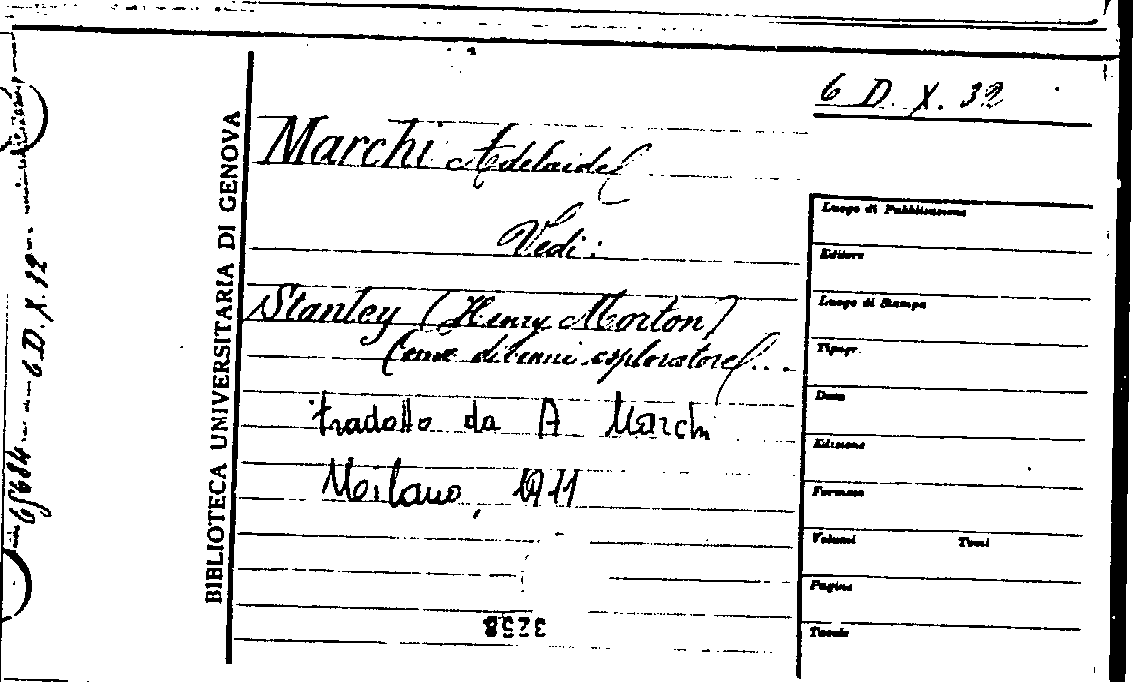 6 D. X. 32
BIBLIOTECA UNIVERSITARIA DI GENOVA
Marchi Adelaide
Vedi:
Stanley (Henry Morton)
Come divenni esploratore...
tradotto da A Marchi
Milano, 1911
3258
Luogo di Pubblicazione
Editore
Luogo di Stampa
Tipogr.
Data
Edizione
Formato
Volumi Tomi
Pagine
Tavole
65684 6 D. X. 32